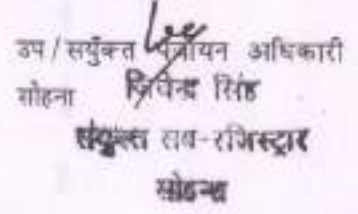 उप/सयुँक्त पंजीयन अधिकारी
सोहना जितेन्द्र सिंह
संयुक्त सब-रजिस्ट्रार
सोहना